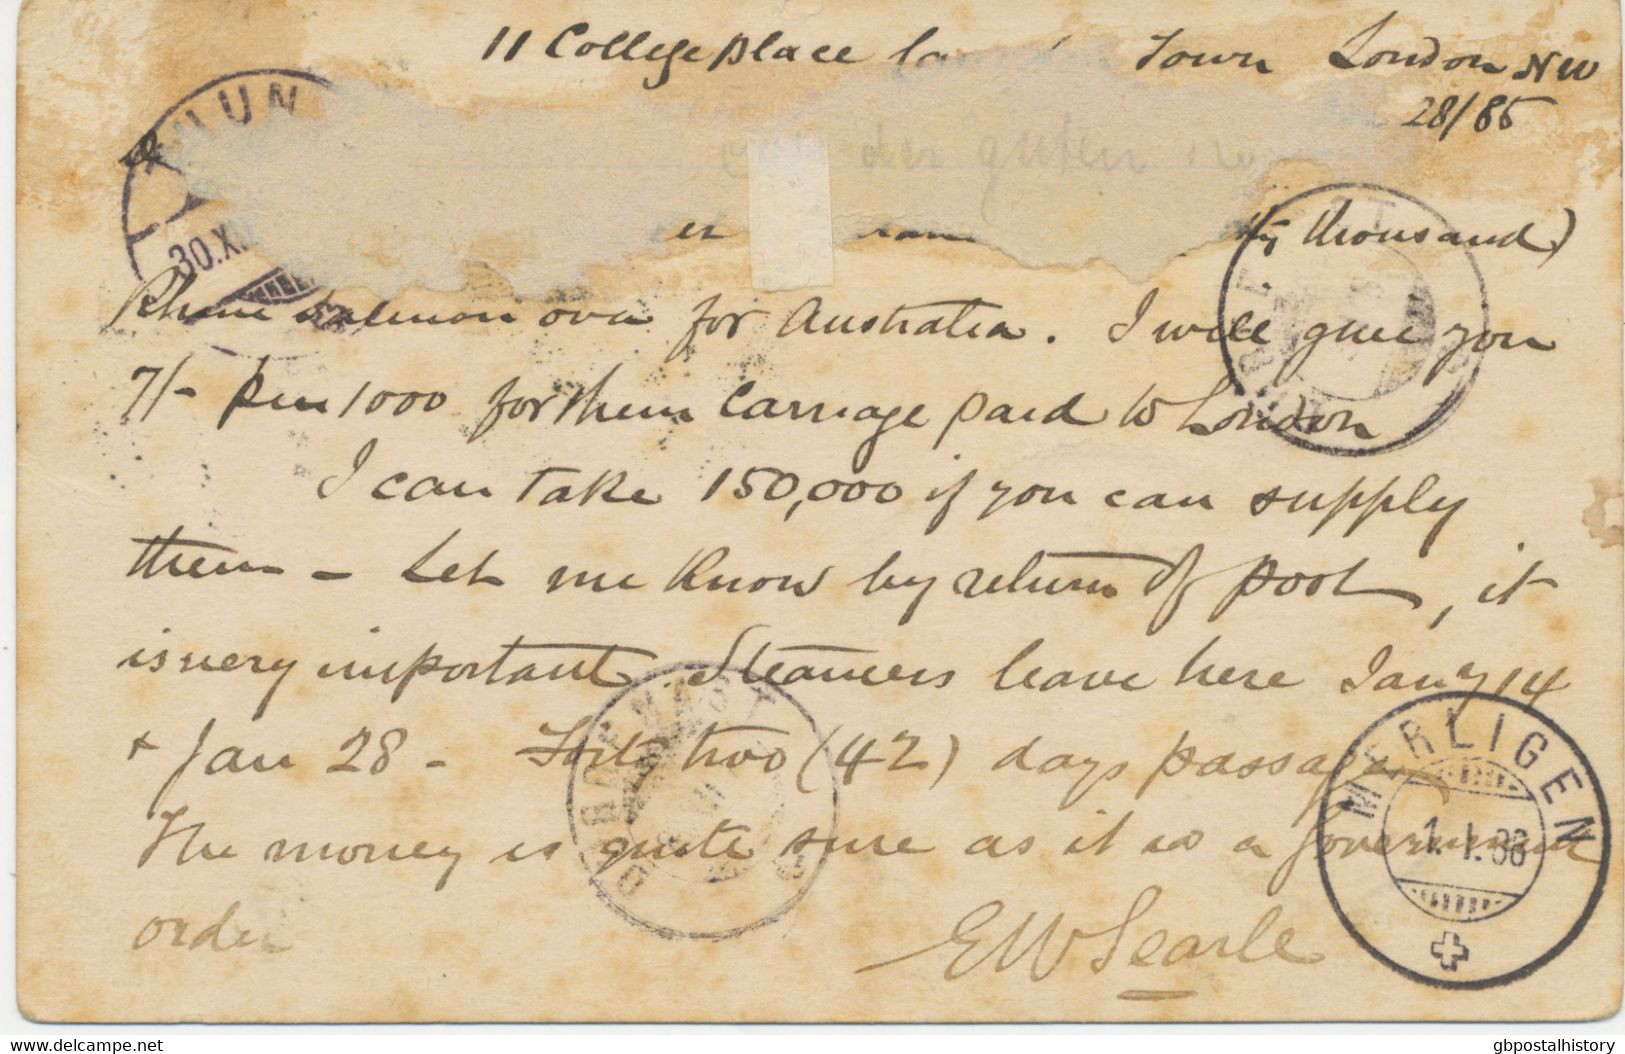 11 College place Town London NW
28/85
der guten
ty thousand)
Rhine Salmon ova for Australia. I will give you
7/- per 1000 for them Carriage paid to London
I can take 150,000 if you can supply
them - Let me know by return of post, it
is very important. Steamers leave here Jany 14
+ Jan 28 - Forty two (42) days passage
The money is quite sure as it is a Government
order
EW Searle
THUN
30.X
MERLIGEN
1.I.86
delcampe.net
gbpostalhistory